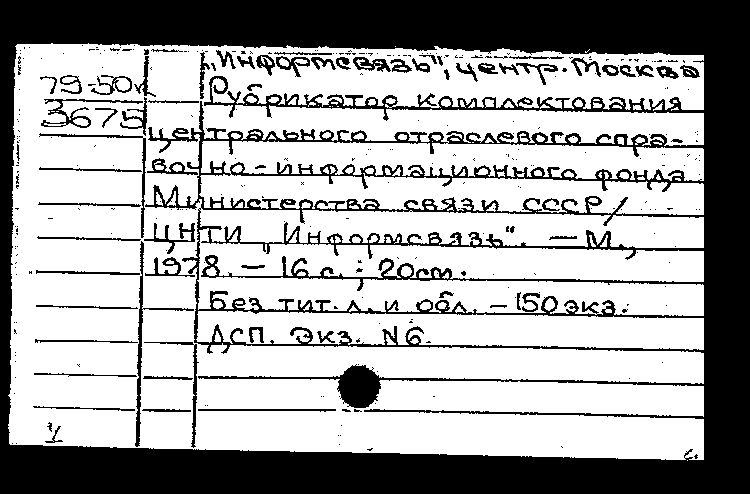 „Информсвязь", центр. Москва
79-50к
Рубрикатор комплектования
3675
центрального отраслевого спра-
вочно-информационного фонда
Министерства связи СССР/
ЦНТИ „Информсвязь". — М.,
1978. — 16 с. ; 20см.
Без тит. л. и обл. — 150 экз.
ДСП. Экз. N6.
с.